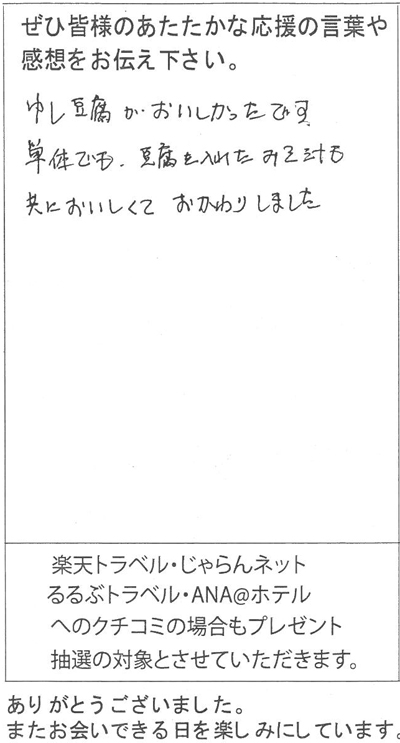 ぜひ皆様のあたたかな応援の言葉や
感想をお伝え下さい。
ゆし豆腐がおいしかったです
単体でも、豆腐を入れたみそ汁も
共においしくて おかわりしました
楽天トラベル・じゃらんネット
るるぶトラベル・ANA@ホテル
へのクチコミの場合もプレゼント
抽選の対象とさせていただきます。
ありがとうございました。
またお会いできる日を楽しみにしています。